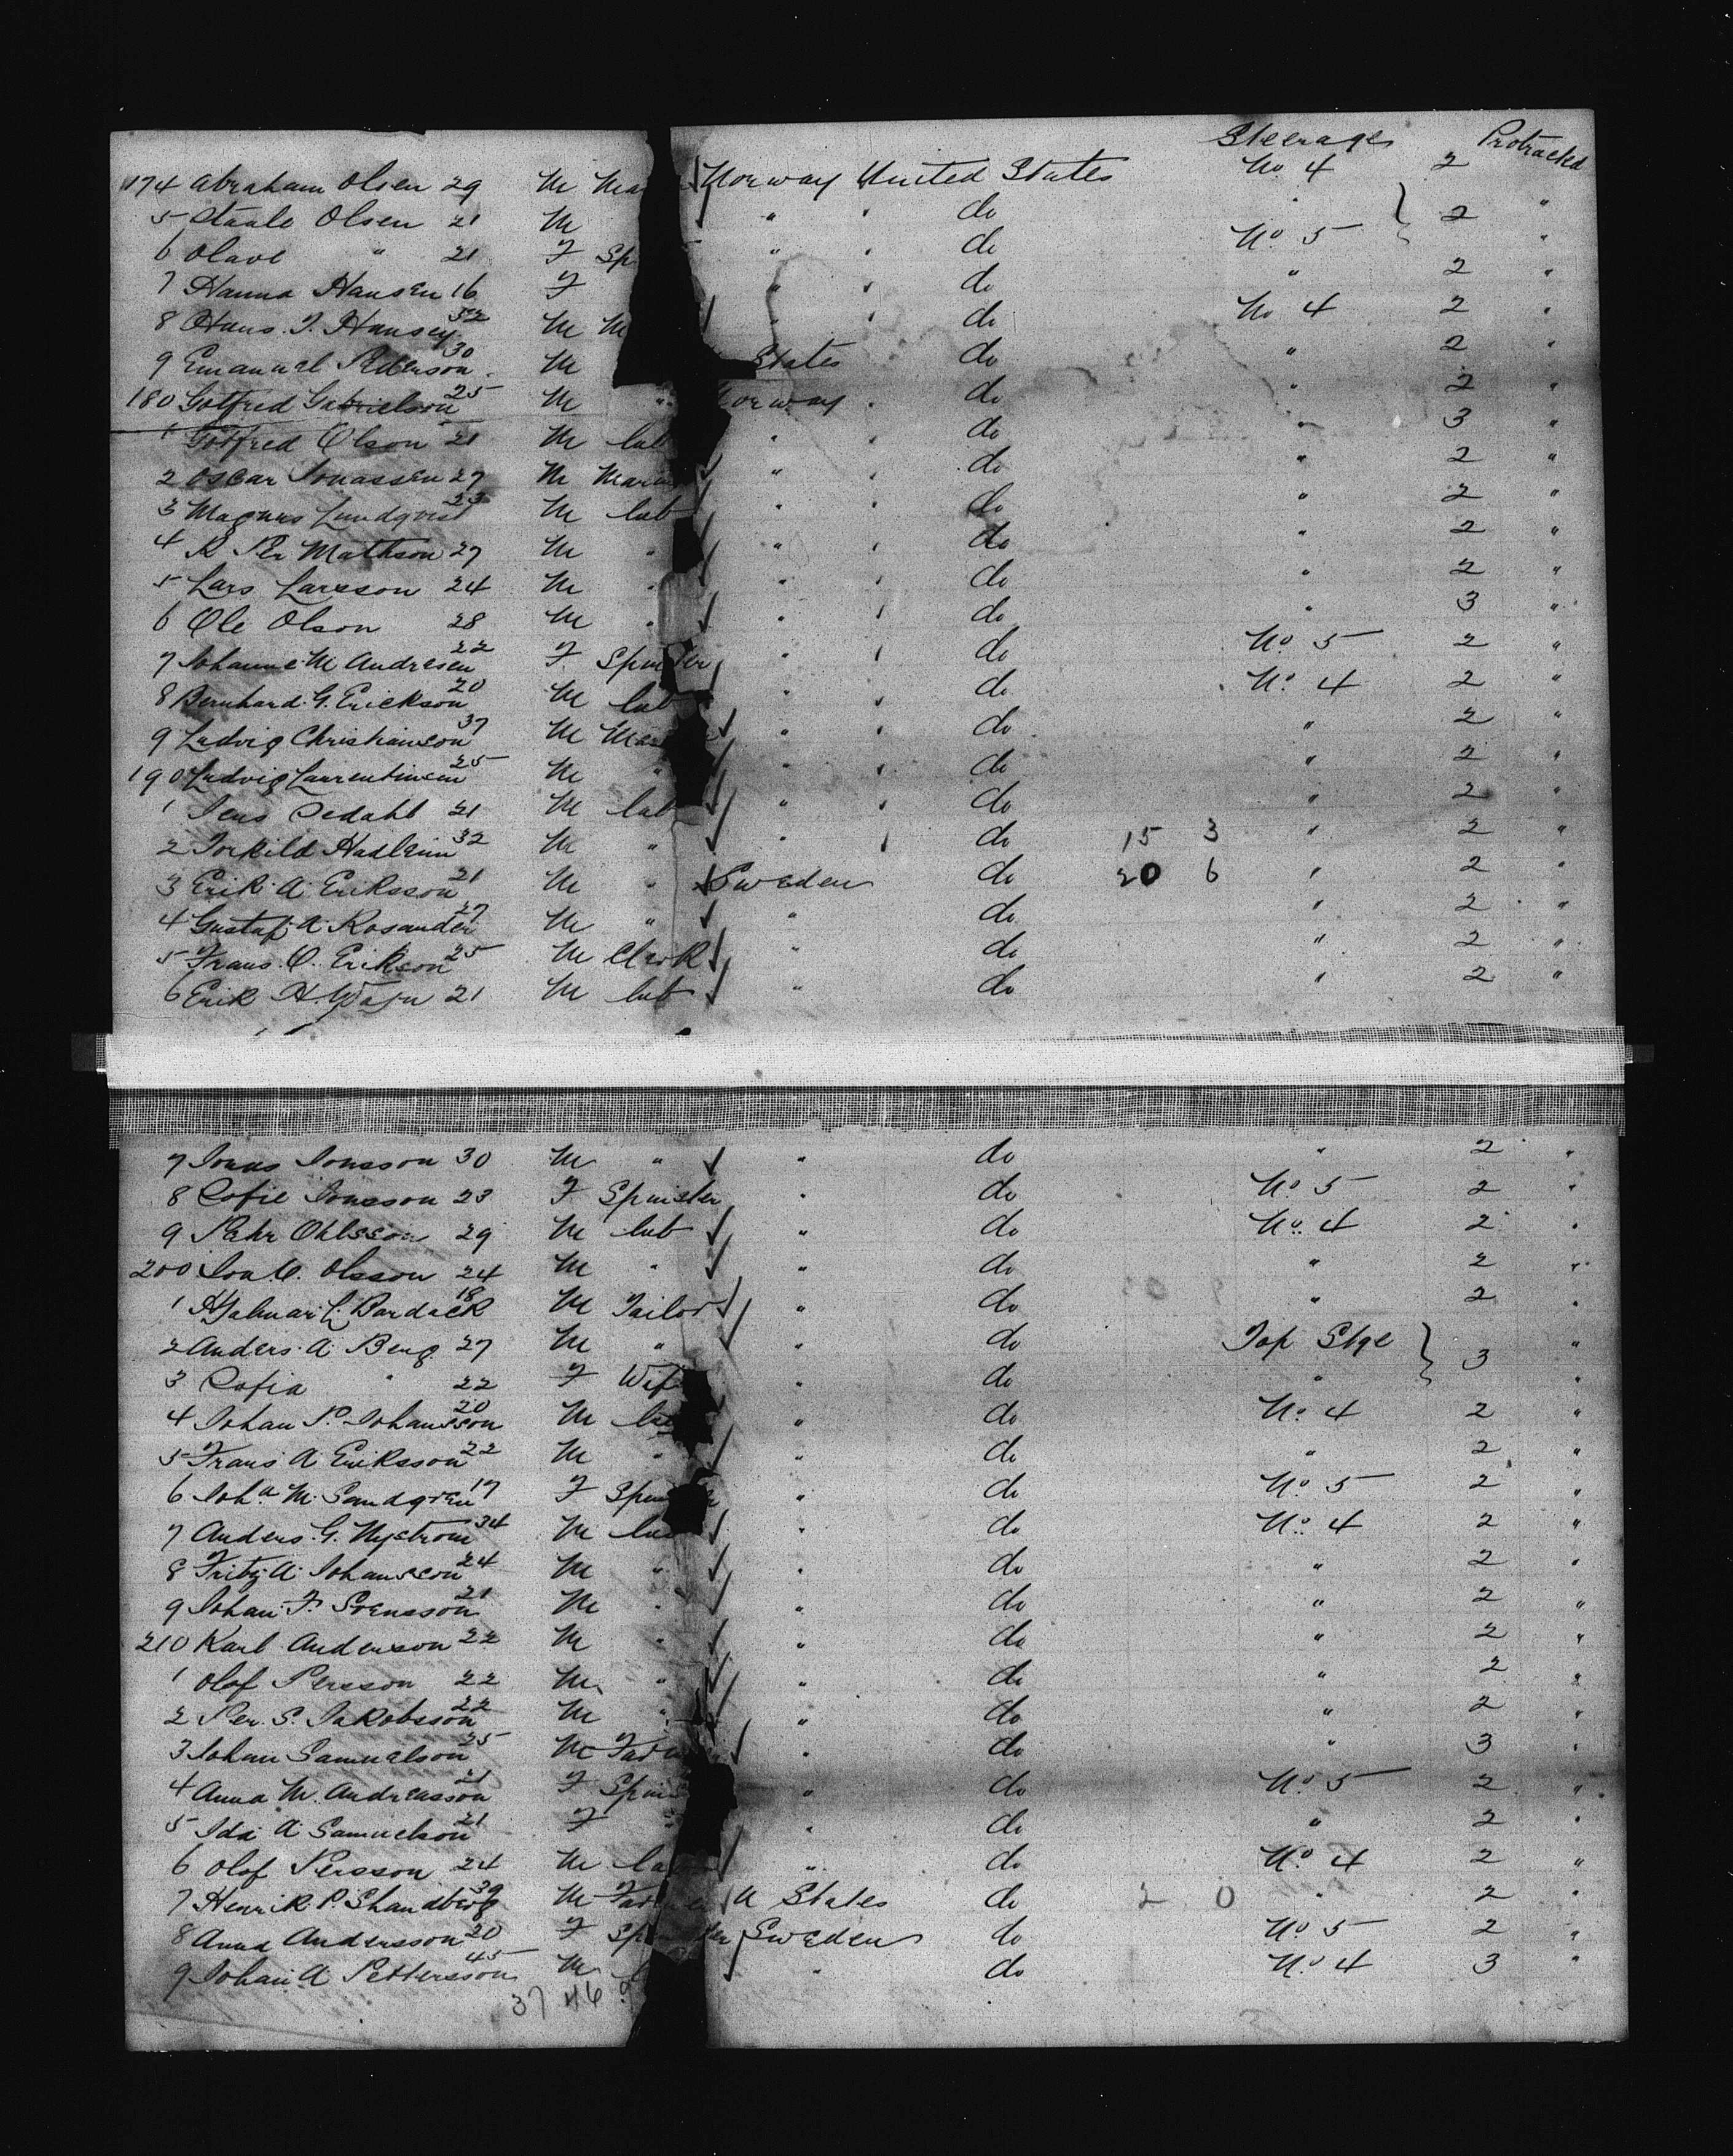 Steerage Protracted
174 Abraham Olsen 29 M Norway United States No 4 2
5 Staale Olsen 21 M " " do " 2 "
6 Olave " 21 F Sp " " do No 5 "
7 Hanna Hansen 16 F " " do " 2 "
8 Hans. J. Hansen 32 M M " " do No 4 2 "
9 Emanuel Pederson 30 M States do " 2 "
180 Gotfred Gabrielson 25 M " Norway " do " 2 "
1 Gotfred Olson 21 M lab " " do " 3 "
2 Oscar Jonassen 27 M " " do " 2 "
3 Magnus Lundqvist 23 M lab " " do " 2 "
4 Per Mathson 27 M " " " do " 2 "
5 Lars Larsson 24 M " " " do " 2 "
6 Ole Olson 28 M " " " do " 3 "
7 Johanne M Andresen 22 F Spinster " " do No 5 2 "
8 Bernhard G. Erickson 20 M lab " " do No 4 2 "
9 Ludvig Christianson 37 M " " do " 2 "
190 Ludvig Laurentinsen 25 M " " " do " 2 "
1 Jens Oedahl 21 M lab " " do " 2 "
2 Torkild Hadlenin 32 M " " " do 15 3 " 2 "
3 Erik A Eriksson 21 M " Sweden do 20 6 " 2 "
4 Gustaf A Rosander 27 M " " do " 2 "
5 Frans O. Erikson 25 M Clerk " do " 2 "
6 Erik H. 21 M lab " do " 2 "
7 Jonas Jonsson 30 M " " do " 2 "
8 Sofie Jonsson 23 F Spinster " do No 5 2 "
9 Pehr Ohlsson 29 M lab " do No 4 2 "
200 Olsson 24 M " " do " 2 "
1 Hjalmar L. Bardack 18 M Tailor " do " 2 "
2 Anders A Berg 27 M " " do Top Stge 3 "
3 Sofia " 22 F Wife " do " "
4 Johan P. Johansson 20 M lab " do No 4 2 "
5 Frans A Eriksson 22 M " " do " 2 "
6 Joha M Sandgren 17 F Spinster " do No 5 2 "
7 Anders G. Nystrom 34 M lab " do No 4 2 "
8 Fritz A Johansson 24 M " " do " 2 "
9 Johan F. Svensson 21 M " " do " 2 "
210 Karl Anderson 22 M " " do " 2 "
1 Olof Persson 22 M " " do " 2 "
2 Per S. Jakobsson 22 M " " do " 2 "
3 Johan Samuelson 25 M Farmer " do " 3 "
4 Anna M. Andreasson 21 F Spins " do No 5 2 "
5 Ida A Samuelson 21 F " " do " 2 "
6 Olof Persson 24 M lab " do No 4 2 "
7 Henrik P. Shandberg 39 M Farmer U States do 2 0 " 2 "
8 Anna Andersson 20 F Spinster Sweden do No 5 2 "
9 Johan A Pettersson 45 M " do No 4 3 "
37 46 9